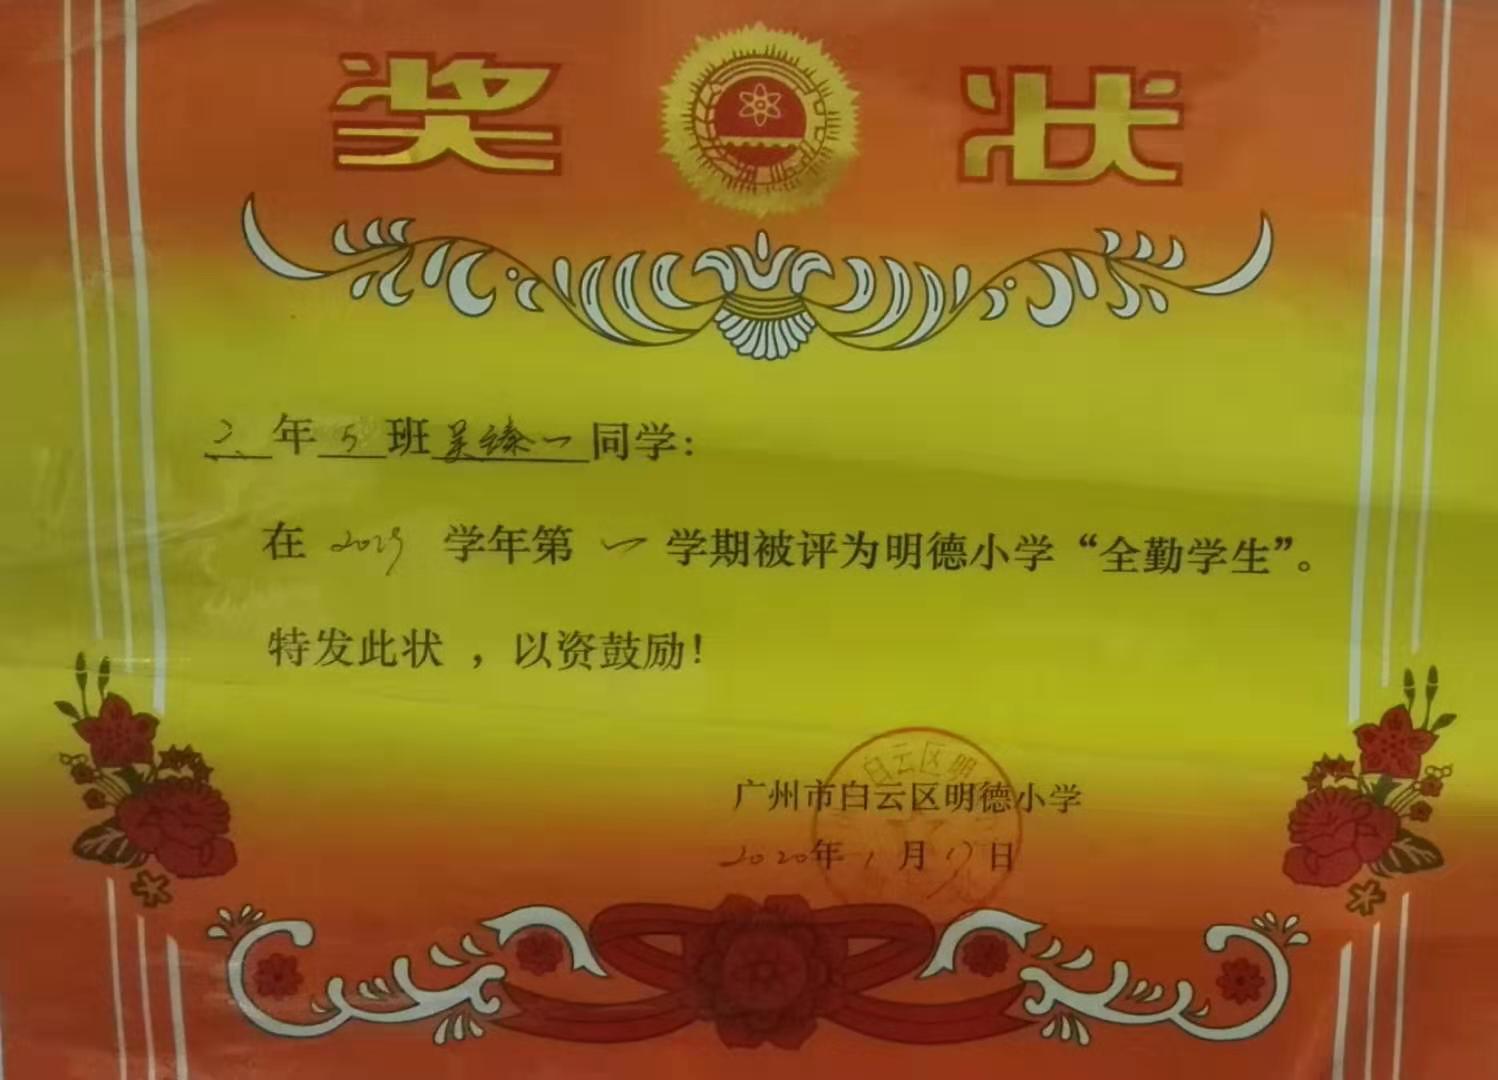 奖状
二年5班吴臻一同学:
在2019学年第一学期被评为明德小学“全勤学生”。
特发此状，以资鼓励!
白云区明
广州市白云区明德小学
2020年1月17日